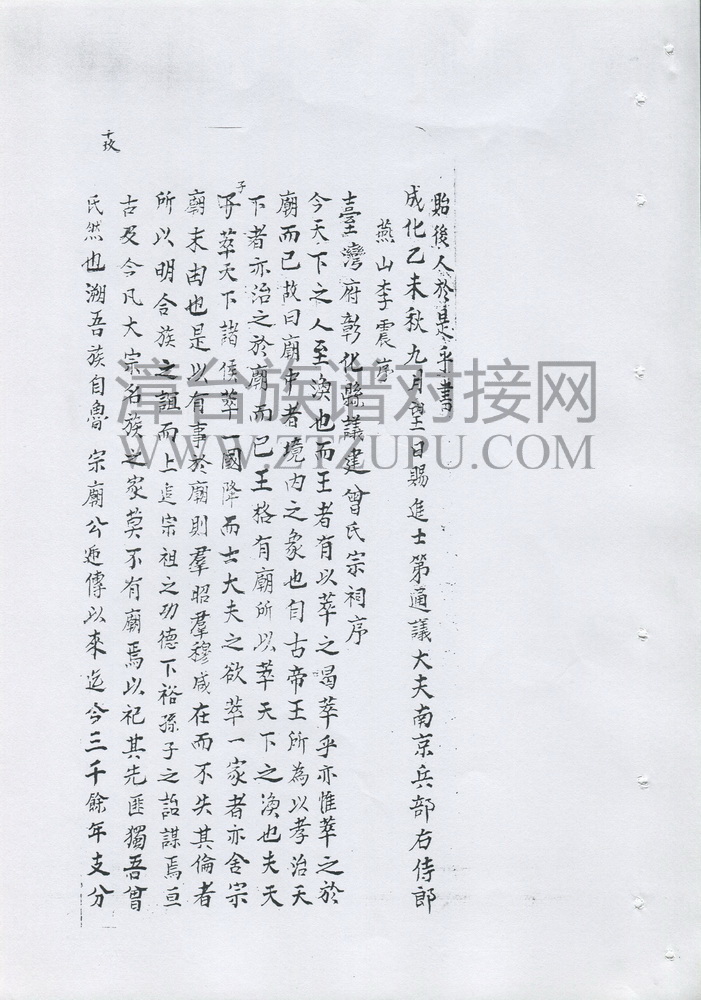 貽後人於是乎書
成化乙未秋九月望日賜進士第通議大夫南京兵部右侍郎
燕山李震序
臺灣府彰化縣議建曾氏宗祠序
今天下之人至渙也而王者有以萃之曷萃乎亦惟萃之於
廟而已故曰廟中者境內之象也自古帝王所為以孝治天
下者亦治之於廟而已王格有廟所以萃天下之渙也夫天
子萃天下諸侯萃一國降而士大夫之欲萃一家者亦舍宗
廟末由也是以有事於廟則羣昭羣穆咸在而不失其倫者
所以明合族之誼而上追宗祖之功德下裕孫子之詒謀焉亘
古及今凡大宗名族之家莫不有廟焉以祀其先匪獨吾曾
氏然也溯吾族自魯宗廟公遞傳以來迄今三千餘年支分
漳台族谱对接网
WWW.ZTZUPU.COM